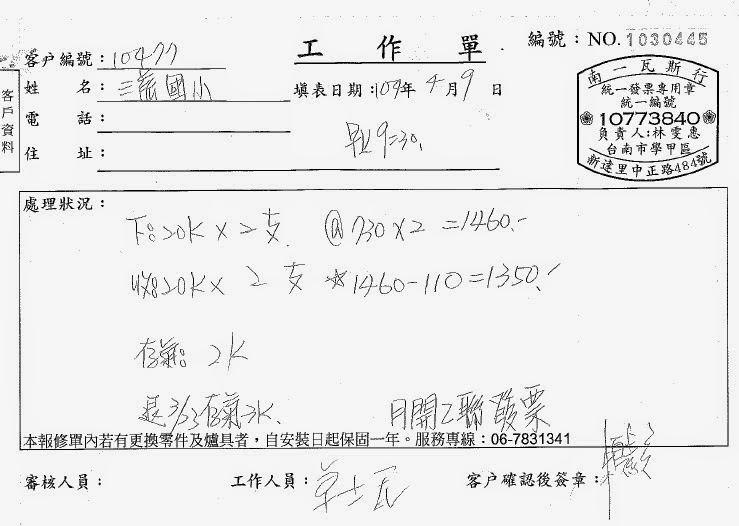 工 作 單
編號：NO. 1030445
客户編號：10477
姓 名：三慈國小
填表日期：109年4月9日
電 話：
早上9=30.
住 址：
客戶資料
南一瓦斯行
統一發票專用章
統一編號
10773840
負責人:林雯惠
台南市學甲區
新達里中正路484號
處理狀況：
下:20K×2支. @730×2=1460.-
收:20K× 2支 *1460-110=1350.-
存氣: 2K
退3/23存氣3K.
月開乙聯發票
本報修單內若有更換零件及爐具者，自安裝日起保固一年。服務專線：06-7831341
審核人員：
工作人員：
客户確認後簽章：